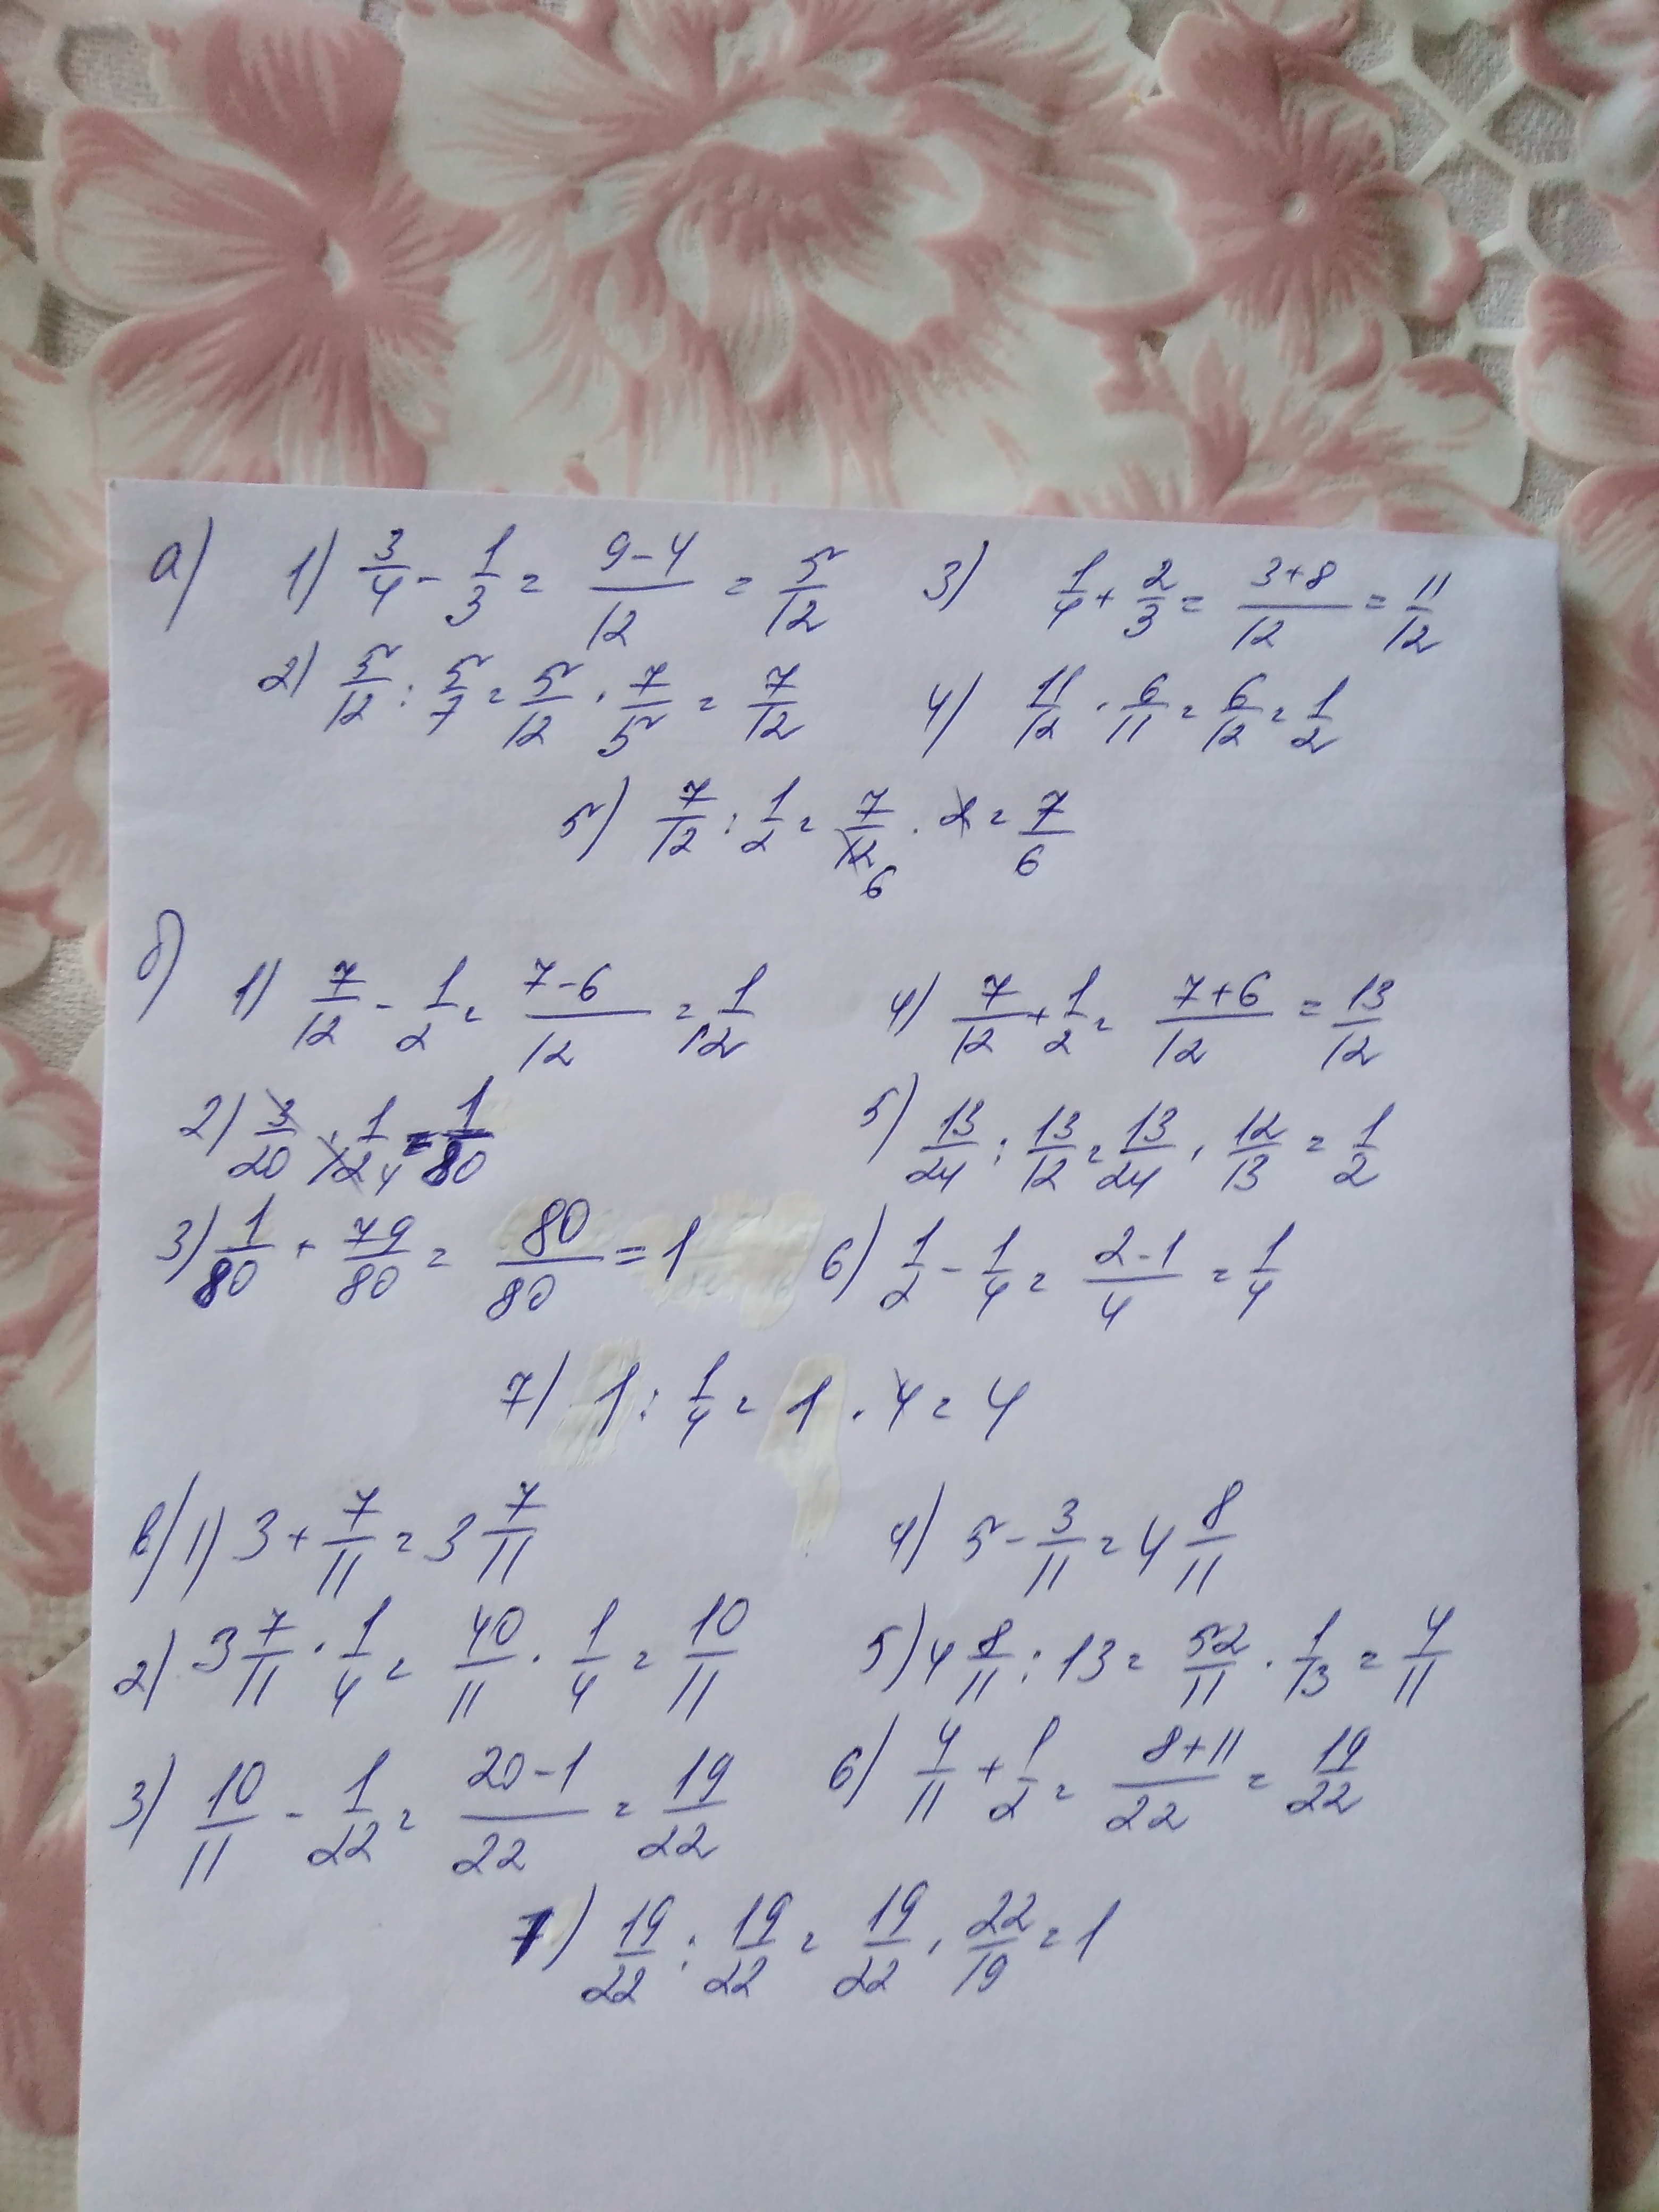 а) 1) 3/4 - 1/3 = (9-4)/12 = 5/12 3) 1/4 + 2/3 = (3+8)/12 = 11/12
2) 5/12 : 5/7 = 5/12 · 7/5 = 7/12 4) 11/12 · 6/11 = 6/12 = 1/2
5) 7/12 : 1/2 = 7/12 6 · 2 = 7/6
б) 1) 7/12 - 1/2 = (7-6)/12 = 1/12 4) 7/12 + 1/2 = (7+6)/12 = 13/12
2) 3/20 · 1/12 4 = 1/80 5) 13/24 : 13/12 = 13/24 · 12/13 = 1/2
3) 1/80 + 79/80 = 80/80 = 1 6) 1/2 - 1/4 = (2-1)/4 = 1/4
7) 1 : 1/4 = 1 · 4 = 4
в) 1) 3 + 7/11 = 3 7/11 4) 5 - 3/11 = 4 8/11
2) 3 7/11 · 1/4 = 40/11 · 1/4 = 10/11 5) 4 8/11 : 13 = 52/11 · 1/13 = 4/11
3) 10/11 - 1/22 = (20-1)/22 = 19/22 6) 4/11 + 1/2 = (8+11)/22 = 19/22
7) 19/22 : 19/22 = 19/22 · 22/19 = 1